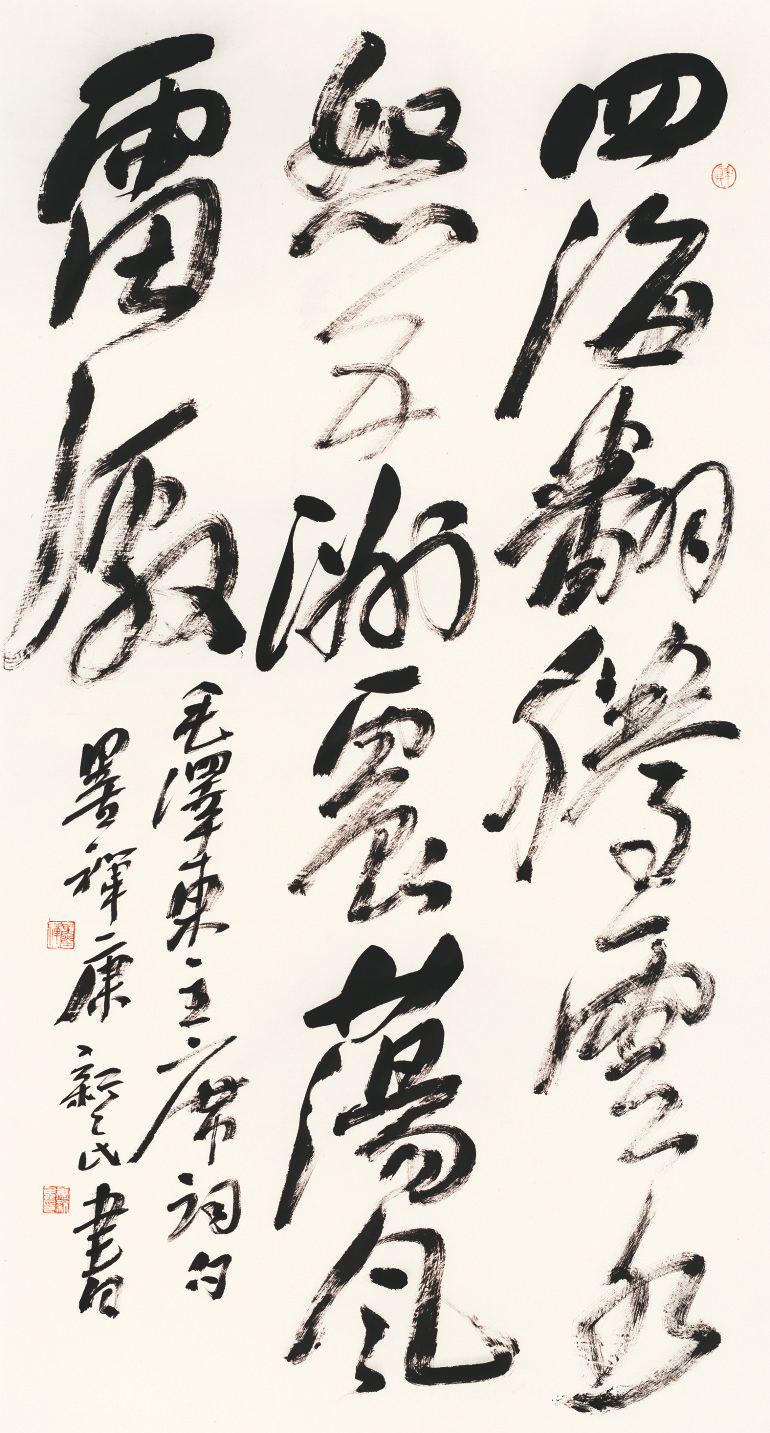 四海翻騰雲水
怒五洲震蕩風
雷激
毛澤東主席詞句
禪康新民書